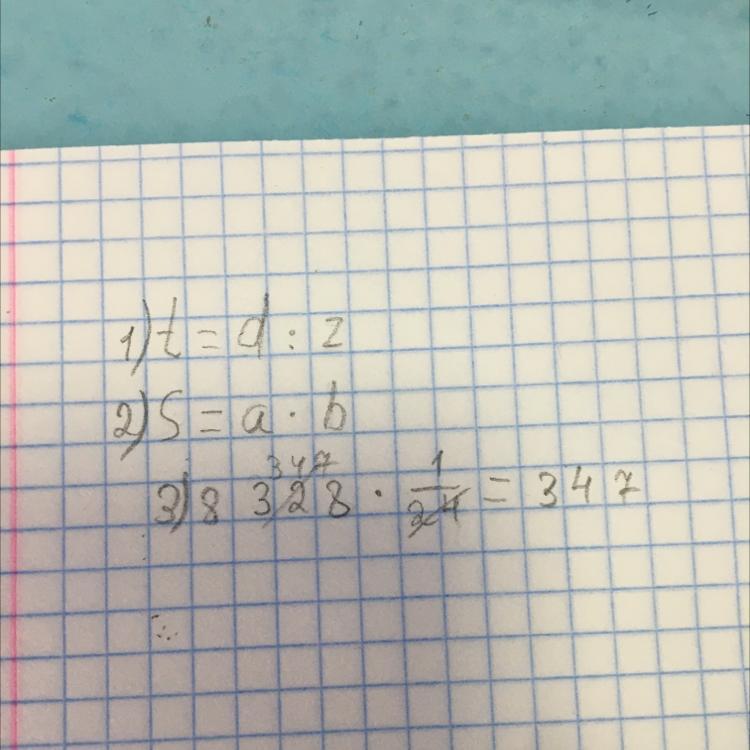 1) t = d : z
2) S = a · b
347
3) 8 328 · 1/24 = 347